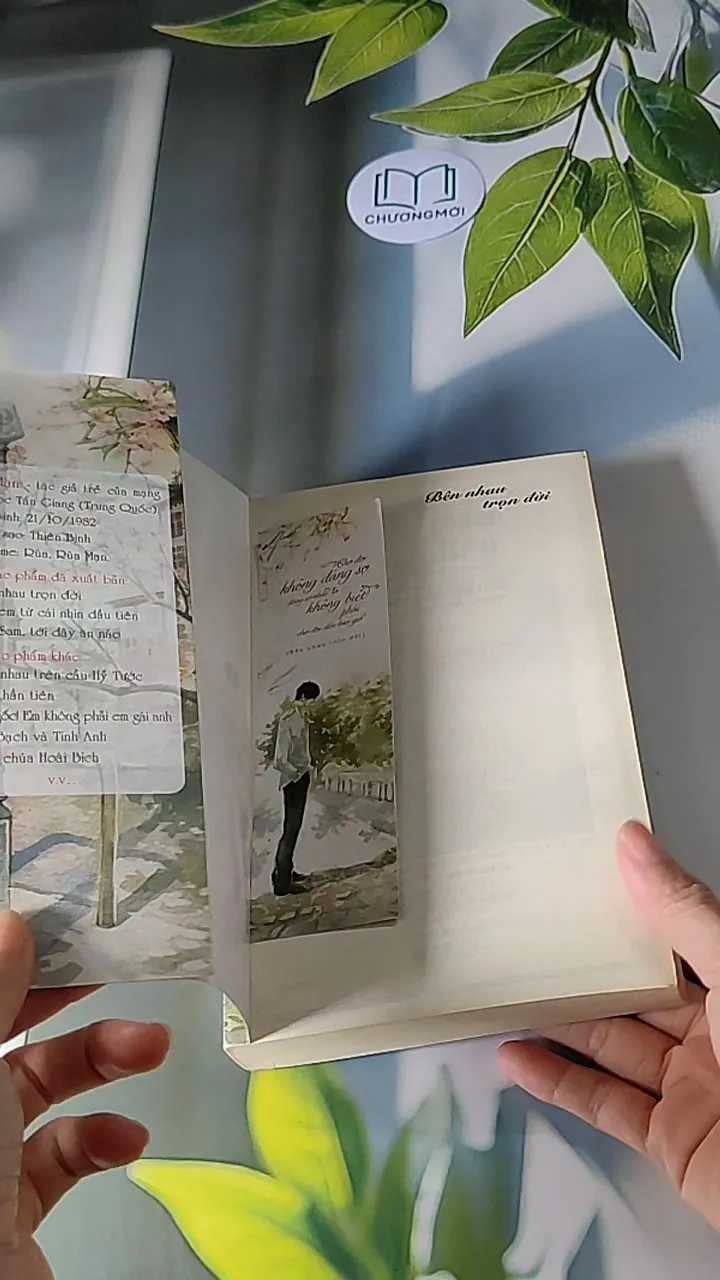 CHƯƠNG MỚI
Mạn - tác giả trẻ của mạng
học Tấn Giang (Trung Quốc)
sinh: 21/10/1982
sao: Thiên Bình
me: Rùa, Rùa Mạn.
phẩm đã xuất bản:
nhau trọn đời
em từ cái nhìn đầu tiên
Sam, tới đây ăn nào
phẩm khác
nhau trên cầu Hỷ Tước
thần tiên
Em không phải em gái anh
Bạch và Tinh Anh
chúa Hoài Bích
v.v...
Bên nhau
trọn đời
Chờ đợi
không đáng sợ
không biết
phải
chờ đợi đến bao giờ